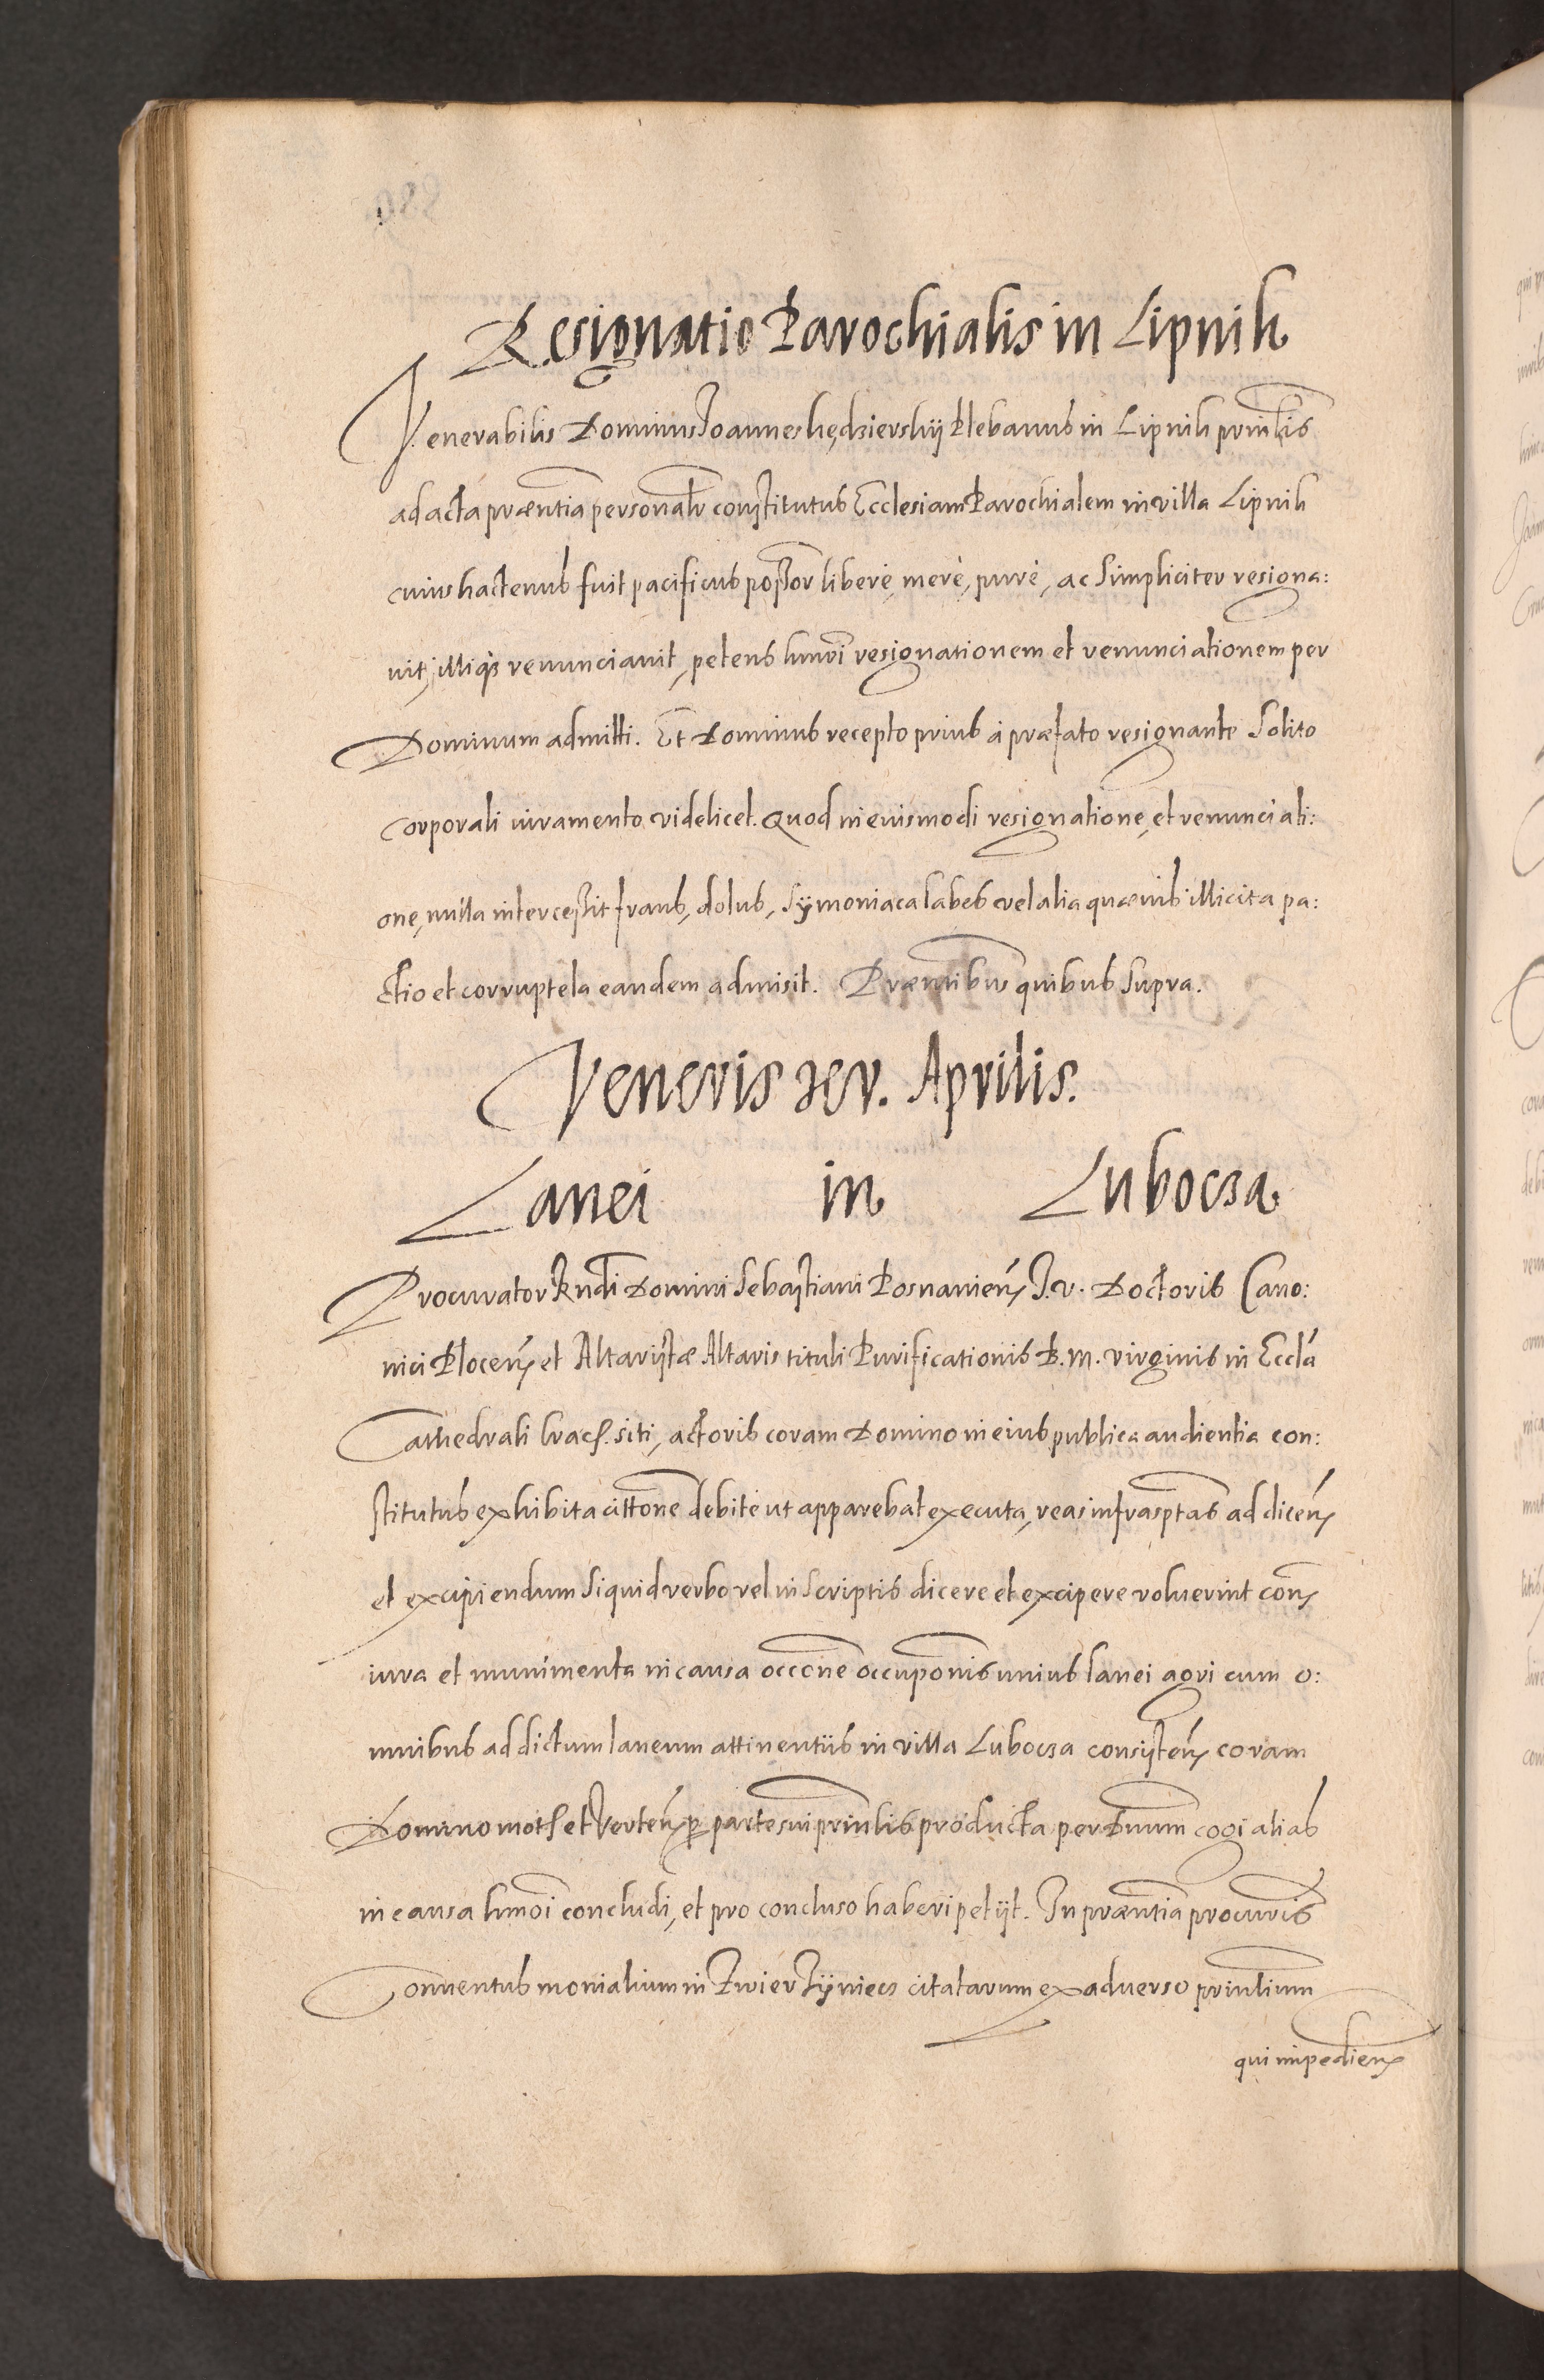 Resignatio Parochialis in Lipnik
Venerabilis Dominus Joannes kędzierskÿ Plebanus in Lipnik prinlis
ad acta præntia personalr constitutus Ecclesiam Parochialem in villa Lipnik
cuius hactenus fuit pacificus possor liberè, merè, purè, ac simpliciter resigna:
uit, illiq3 renunciauit, petens hmoi resignationem et renunciationem per
Dominum admitti. Et Dominus recepto prius à præfato resignante solito
corporali iuramento videlicet. Quod in eiusmodi resignatione, et renunciati:
one, nulla intercessit fraus, dolus, sÿmoniaca labes vel alia quæuis illicita pa:
ctio et corruptela eandem admisit. Præntibus quibus supra.
Veneris xv. Aprilis.
Lanei in Lubocza
Procurator Rndi Domini Sebastiani Posnaniens J. V. Doctoris Cano:
nici Plocens et Altaristæ Altaris tituli Purificationis B. M. virginis in Eccla
Cathedrali Crac. siti, actoris coram Domino in eius publica audientia con:
stitutus exhibita cittone debitè ut apparebat executa, reas infrasptas ad dicens
et excipiendum siquid verbo vel in scriptis dicere et excipere voluerint cons
iura et munimenta in causa occone occuponis unius lanei agri cum o:
mnibus ad dictum laneum attinentiis in villa Lubocza consistens coram
Domino mot. et Vertens per partes sui prinlis producta per Dnum cogi alias
in causa hmoi concludi, et pro concluso haberi petijt. In præntia procuris
Conuentus monialium in Zwierzÿniecz citatarum ex aduerso prinlium
qui impediens